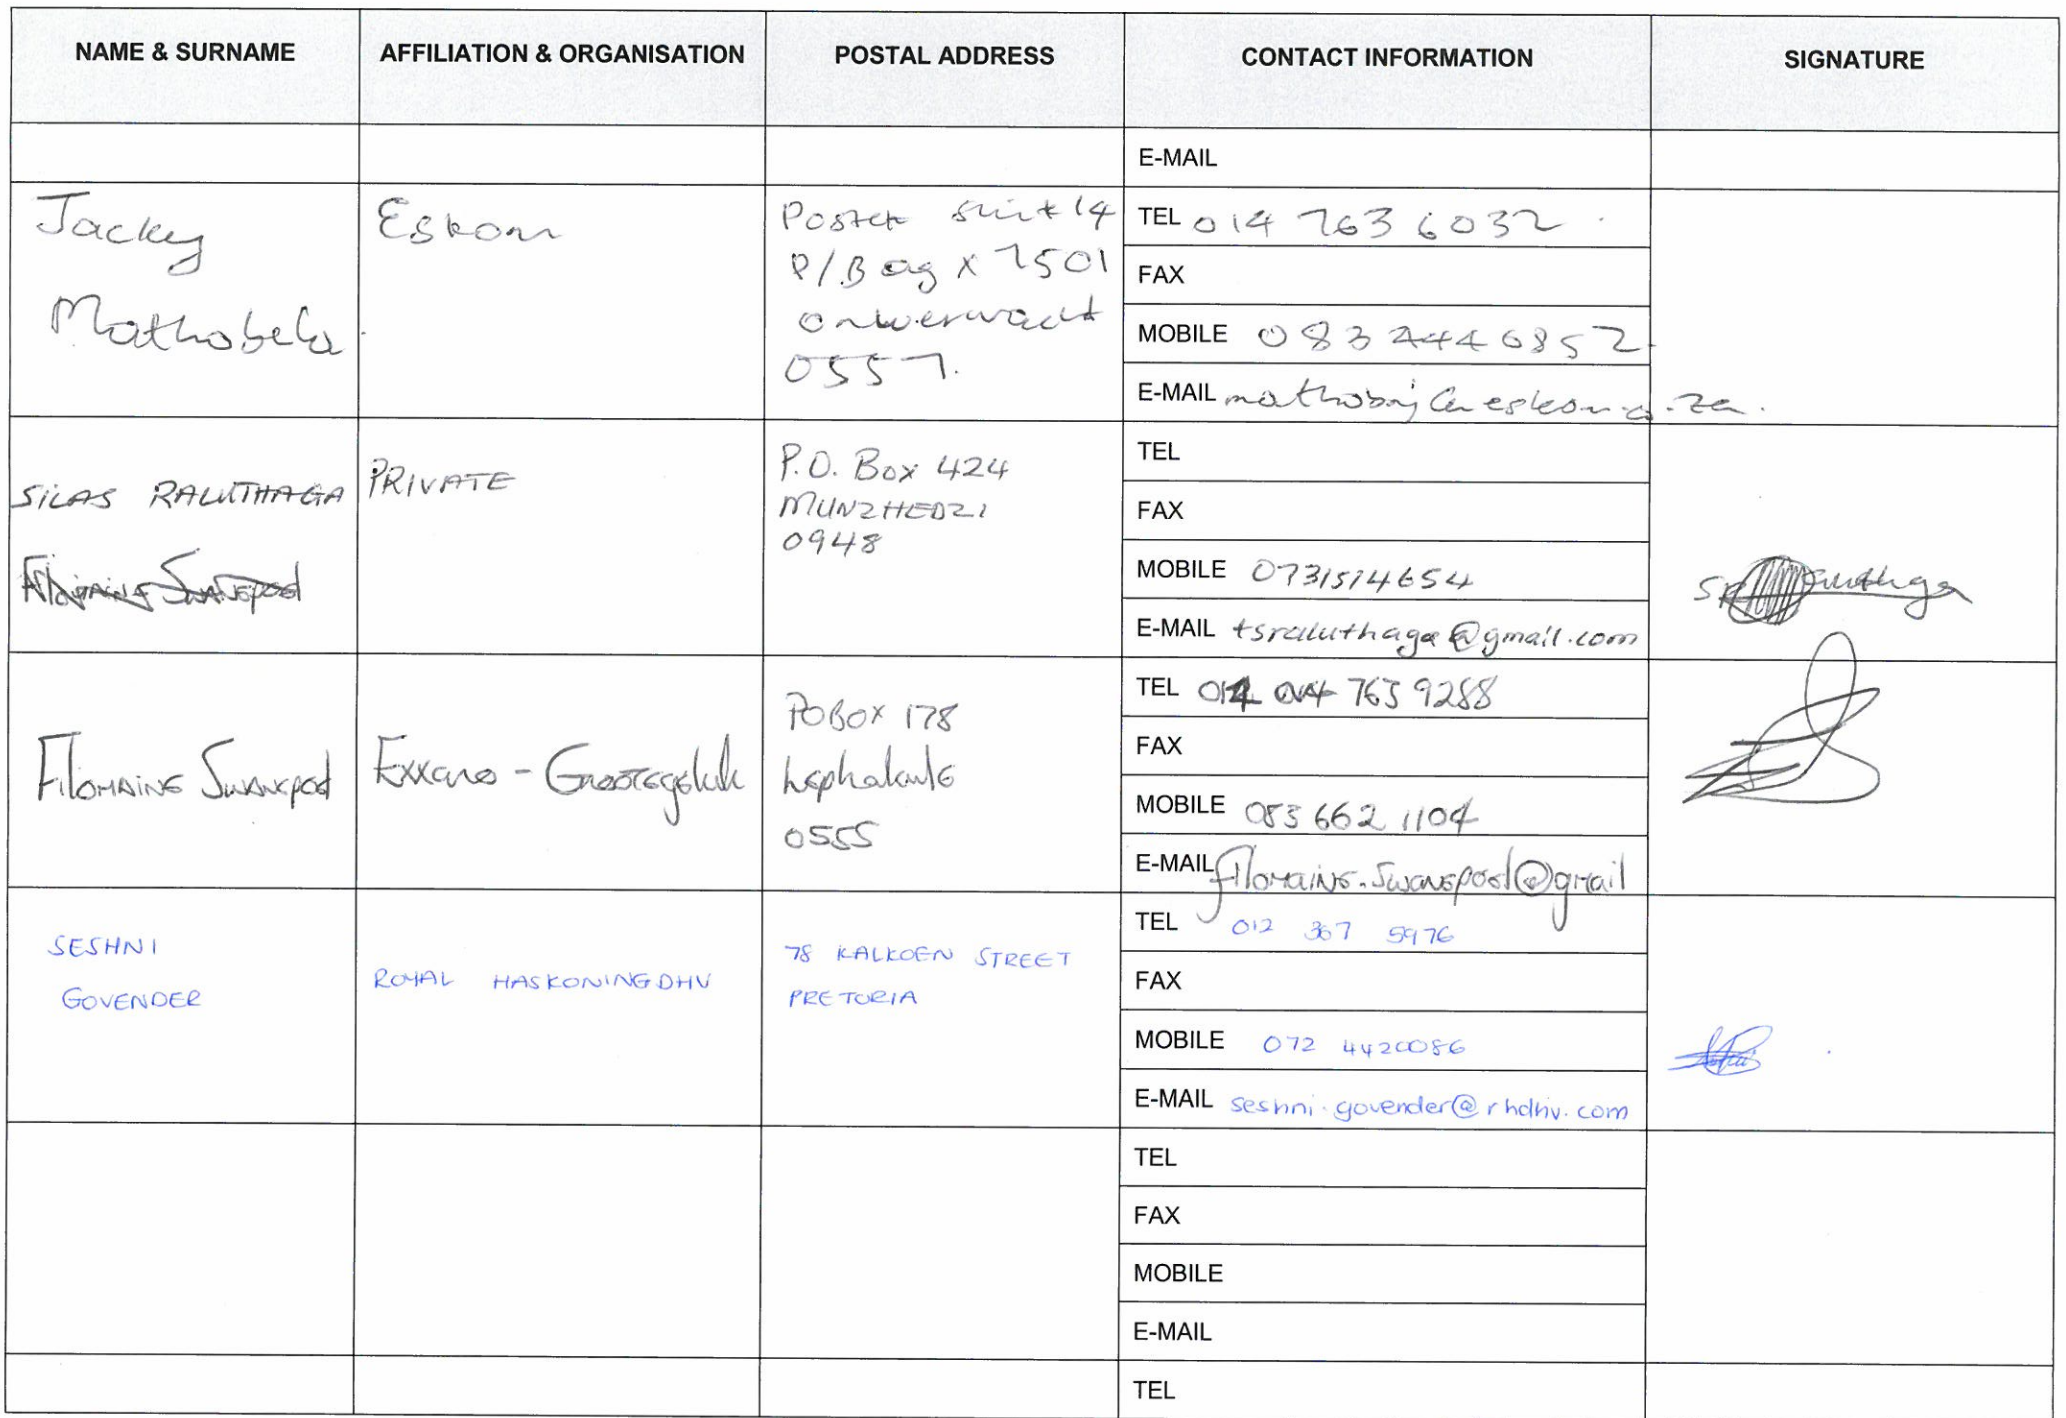 NAME & SURNAME AFFILIATION & ORGANISATION POSTAL ADDRESS CONTACT INFORMATION SIGNATURE
E-MAIL
Jacky
Mathobela
Eskom
Suit 14
P/Bag x 7501
onverwacht
0557.
TEL 014 763 6032
FAX
MOBILE 083 2446852
E-MAIL
SILAS RALUTHAGA
Filomaine Swanepoel
PRIVATE
P.O. Box 424
MUNZHEDZI
0948
TEL
FAX
MOBILE 0731514654
E-MAIL tsraluthaga@gmail.com
Filomaine Swanepoel
Exxaro - Grootegeluk
PO BOX 178
Lephalale
0555
TEL 014 763 9288
FAX
MOBILE 083 662 1104
E-MAIL filomaine.swanepoel@gmail
SESHNI
GOVENDER
ROYAL HASKONINGDHV
78 KALKOEN STREET
PRETORIA
TEL 012 367 5976
FAX
MOBILE 072 4420086
E-MAIL seshni.govender@rhdhv.com
TEL
FAX
MOBILE
E-MAIL
TEL